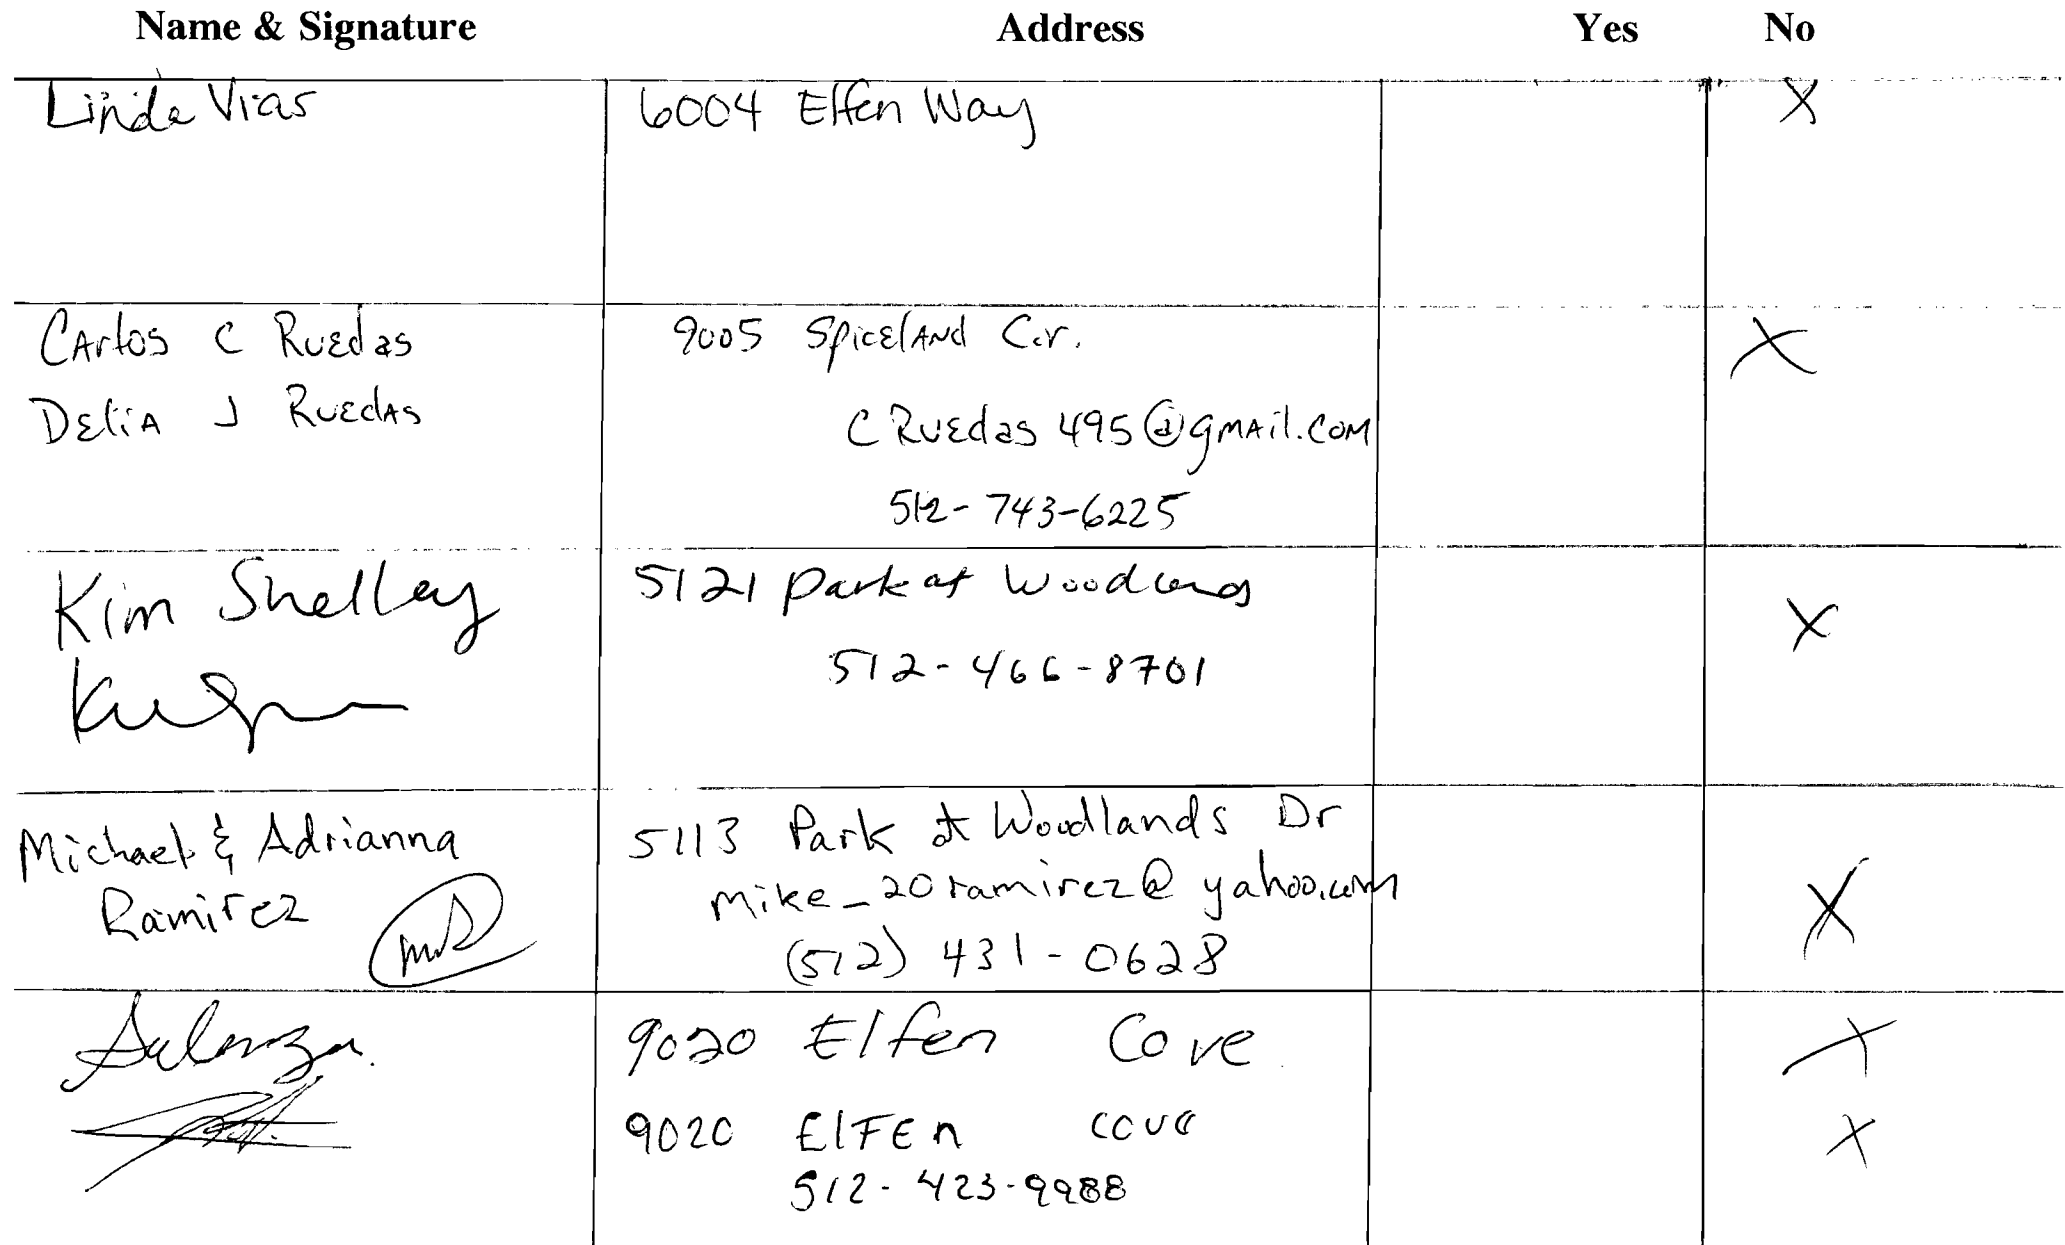 Name & Signature Address Yes No
Linda Vias 6004 Elfen Way X
Carlos C Ruedas 9005 Spiceland Cir. X
Delia J Ruedas CRuedas495@gmail.com
512-743-6225
Kim Shelley 5121 Park at Woodlands X
512-466-8701
Michael & Adrianna 5113 Park at Woodlands Dr
Ramirez mike_20ramirez@yahoo.com X
(512) 431-0628
9020 Elfen Cove X
9020 Elfen cove X
512-423-9988